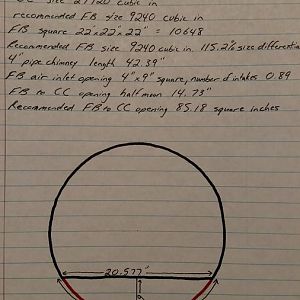 CC size 27720 cubic in
recommended FB size 9240 cubic in
FB square 22"x22"x22" = 10648
Recommended FB size 9240 cubic in. 115.2% size differential
4" pipe chimney length 42.39"
FB air inlet opening 4"x9" square, number of intakes 0.89
FB to CC opening half moon 14.73"
Recommended FB to CC opening 85.18 square inches
20.577"